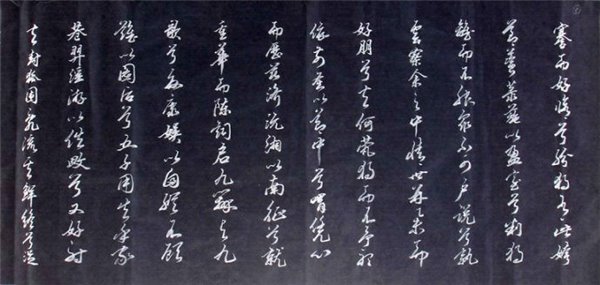 謇而好脩兮紛獨有此姱
節薋菉葹以盈室兮判獨
離而不服眾不可戶說兮孰
云察余之中情世並舉而
好朋兮夫何茕獨而不予聽
依前聖以節中兮喟憑心
而歷茲濟沅湘以南征兮就
重華而陳詞啟九辯與九
歌兮夏康娛以自縱不顧
難以圖後兮五子用失乎家
巷羿淫遊以佚畋兮又好射
夫封狐固亂流其鮮終兮浞